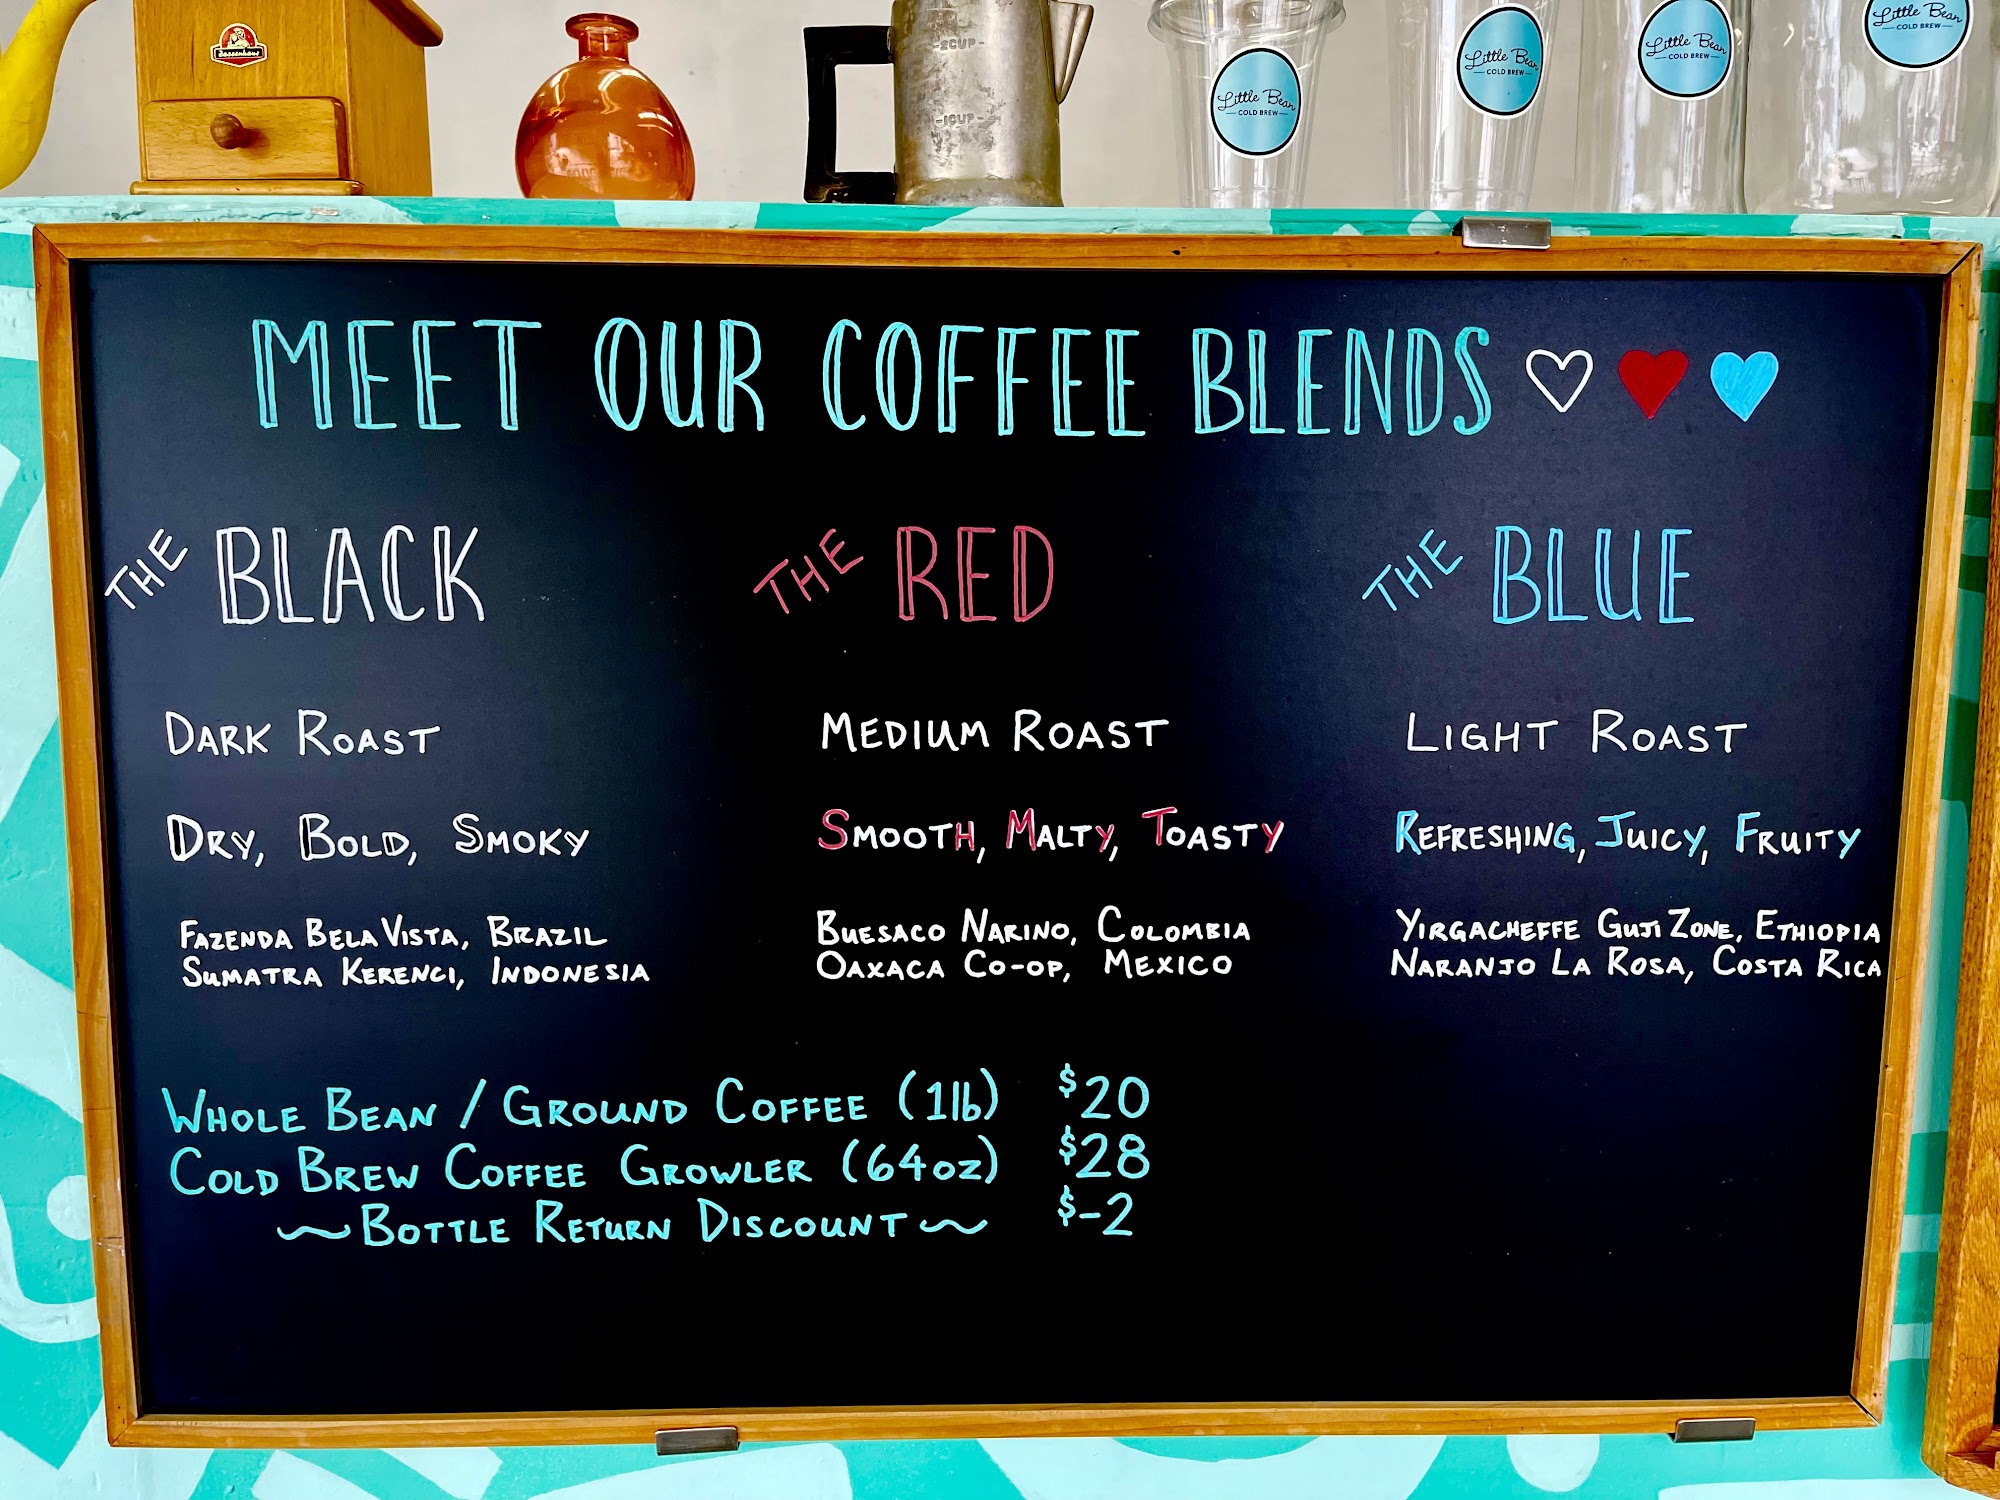 Zassenhaus
-2CUP-
-1CUP-
Little Bean
COLD BREW
Little Bean
COLD BREW
Little Bean
COLD BREW
Little Bean
COLD BREW
MEET OUR COFFEE BLENDS
THE BLACK
DARK ROAST
DRY, BOLD, SMOKY
FAZENDA BELA VISTA, BRAZIL
SUMATRA KERENCI, INDONESIA
THE RED
MEDIUM ROAST
SMOOTH, MALTY, TOASTY
BUESACO NARINO, COLOMBIA
OAXACA CO-OP, MEXICO
THE BLUE
LIGHT ROAST
REFRESHING, JUICY, FRUITY
YIRGACHEFFE GUJI ZONE, ETHIOPIA
NARANJO LA ROSA, COSTA RICA
WHOLE BEAN / GROUND COFFEE (1lb) $20
COLD BREW COFFEE GROWLER (64oz) $28
~BOTTLE RETURN DISCOUNT~ $-2